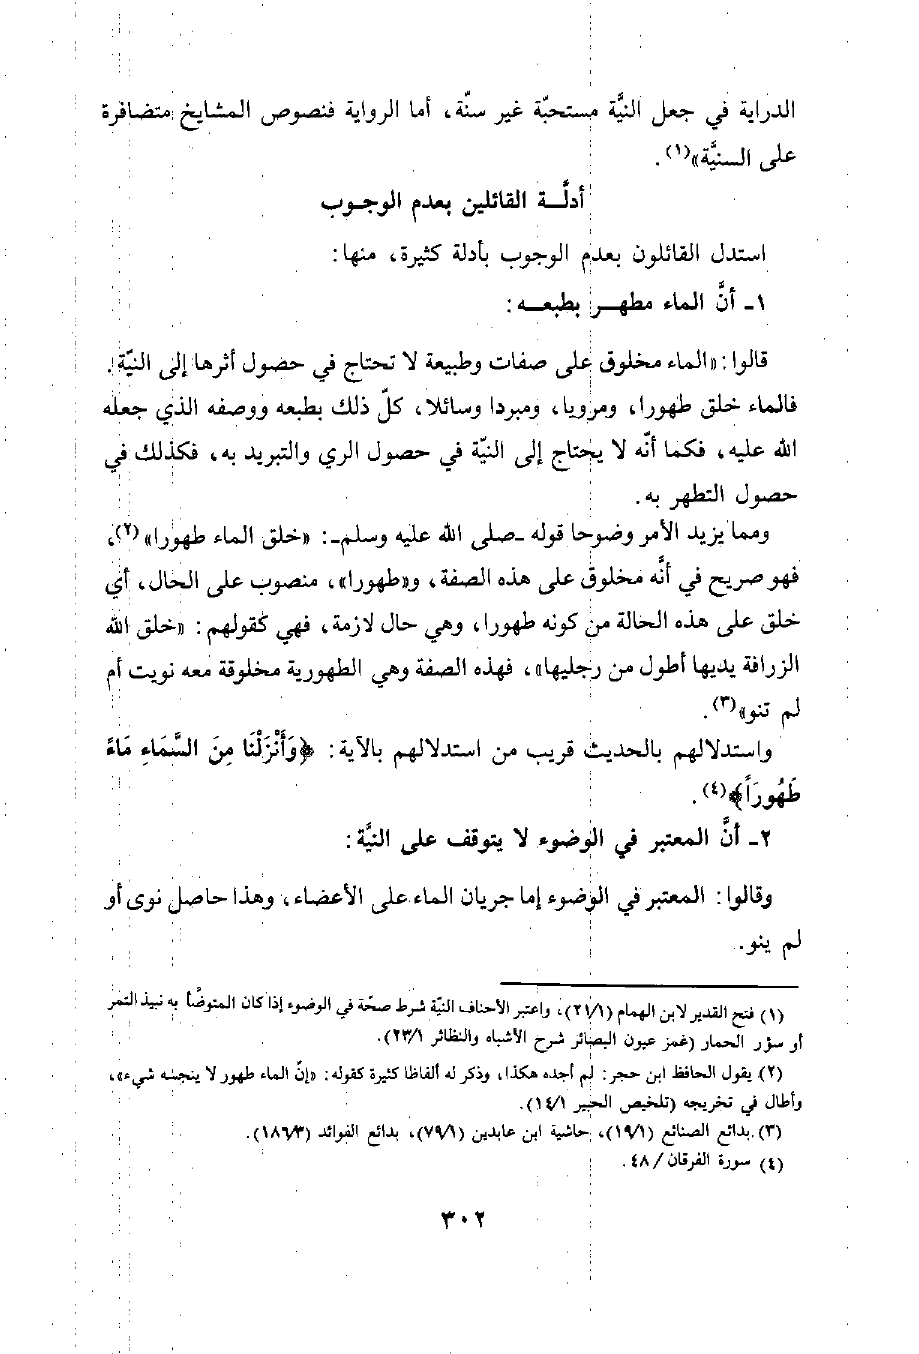 الدراية في جعل النيَّة مستحبّة غير سنّة، أما الرواية فنصوص المشايخ متضافرة
على السنيَّة»(١).
أدلَّــة القائلين بعدم الوجـوب
استدل القائلون بعدم الوجوب بأدلة كثيرة، منها:
١ـ أنَّ الماء مطهـر بطبعـه:
قالوا: «الماء مخلوق على صفات وطبيعة لا تحتاج في حصول أثرها إلى النيّة.
فالماء خلق طهورا، ومرويا، ومبردا وسائلا، كلّ ذلك بطبعه ووصفه الذي جعله
الله عليه، فكما أنّه لا يحتاج إلى النيّة في حصول الري والتبريد به، فكذلك في
حصول التطهر به.
ومما يزيد الأمر وضوحا قوله ـصلى الله عليه وسلمـ: «خلق الماء طهورا»(٢)،
فهو صريح في أنَّه مخلوق على هذه الصفة، و«طهورا»، منصوب على الحال، أي
خلق على هذه الحالة من كونه طهورا، وهي حال لازمة، فهي كقولهم: «خلق الله
الزرافة يديها أطول من رجليها»، فهذه الصفة وهي الطهورية مخلوقة معه نويت أم
لم تنو»(٣).
واستدلالهم بالحديث قريب من استدلالهم بالآية: ﴿وَأَنْزَلْنَا مِنَ السَّمَاءِ مَاءً
طَهُورَاً﴾(٤).
٢ـ أنَّ المعتبر في الوضوء لا يتوقف على النيَّة:
وقالوا: المعتبر في الوضوء إما جريان الماء على الأعضاء، وهذا حاصل نوى أو
لم ينو.
(١) فتح القدير لابن الهمام (٢١/١)، واعتبر الأحناف النيّة شرط صحّة في الوضوء إذا كان المتوضَّأ به نبيذ التمر
أو سؤر الحمار (غمز عيون البصائر شرح الأشباه والنظائر ٢٣/١).
(٢) يقول الحافظ ابن حجر: لم أجده هكذا، وذكر له ألفاظا كثيرة كقوله: «إنّ الماء طهور لا ينجسه شيء»،
وأطال في تخريجه (تلخيص الحبير ١٤/١).
(٣) بدائع الصنائع (١٩/١)، حاشية ابن عابدين (٧٩/١)، بدائع الفوائد (١٨٦/٣).
(٤) سورة الفرقان / ٤٨.
٣٠٢